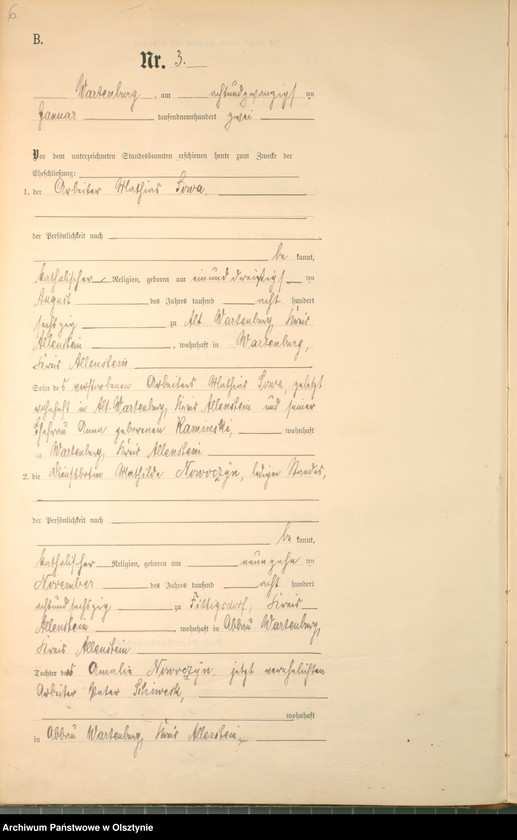 6
B.
Nr. 3.
Wartenburg, am achtundzwanzigsten
Januar tausendneunhundert zwei
Vor dem unterzeichneten Standesbeamten erschienen heute zum Zwecke der
Eheschließung:
1. der Arbeiter Mathias Sowa,
der Persönlichkeit nach
be kannt,
katholischer Religion, geboren am einunddreißigsten
August des Jahres tausend acht hundert
sechzig zu Alt Wartenburg, Kreis
Allenstein, wohnhaft in Wartenburg,
Kreis Allenstein
Sohn des verstorbenen Arbeiters Mathias Sowa, zuletzt
wohnhaft in Alt-Wartenburg, Kreis Allenstein und seiner
Ehefrau Anna geborenen Kaminski, wohnhaft
in Wartenburg, Kreis Allenstein
2. die Dienstbotin Mathilde Nowoczyn, ledigen Standes,
der Persönlichkeit nach
be kannt,
katholischer Religion, geboren am neunzehnten
November des Jahres tausend acht hundert
achtundsechzig zu Fittigsdorf, Kreis
Allenstein, wohnhaft in Abbau Wartenburg,
Kreis Allenstein
Tochter der Amalie Nowoczyn, jetzt verehelichten
Arbeiter Peter
wohnhaft
in Abbau Wartenburg, Kreis Allenstein
Archiwum Państwowe w Olsztynie